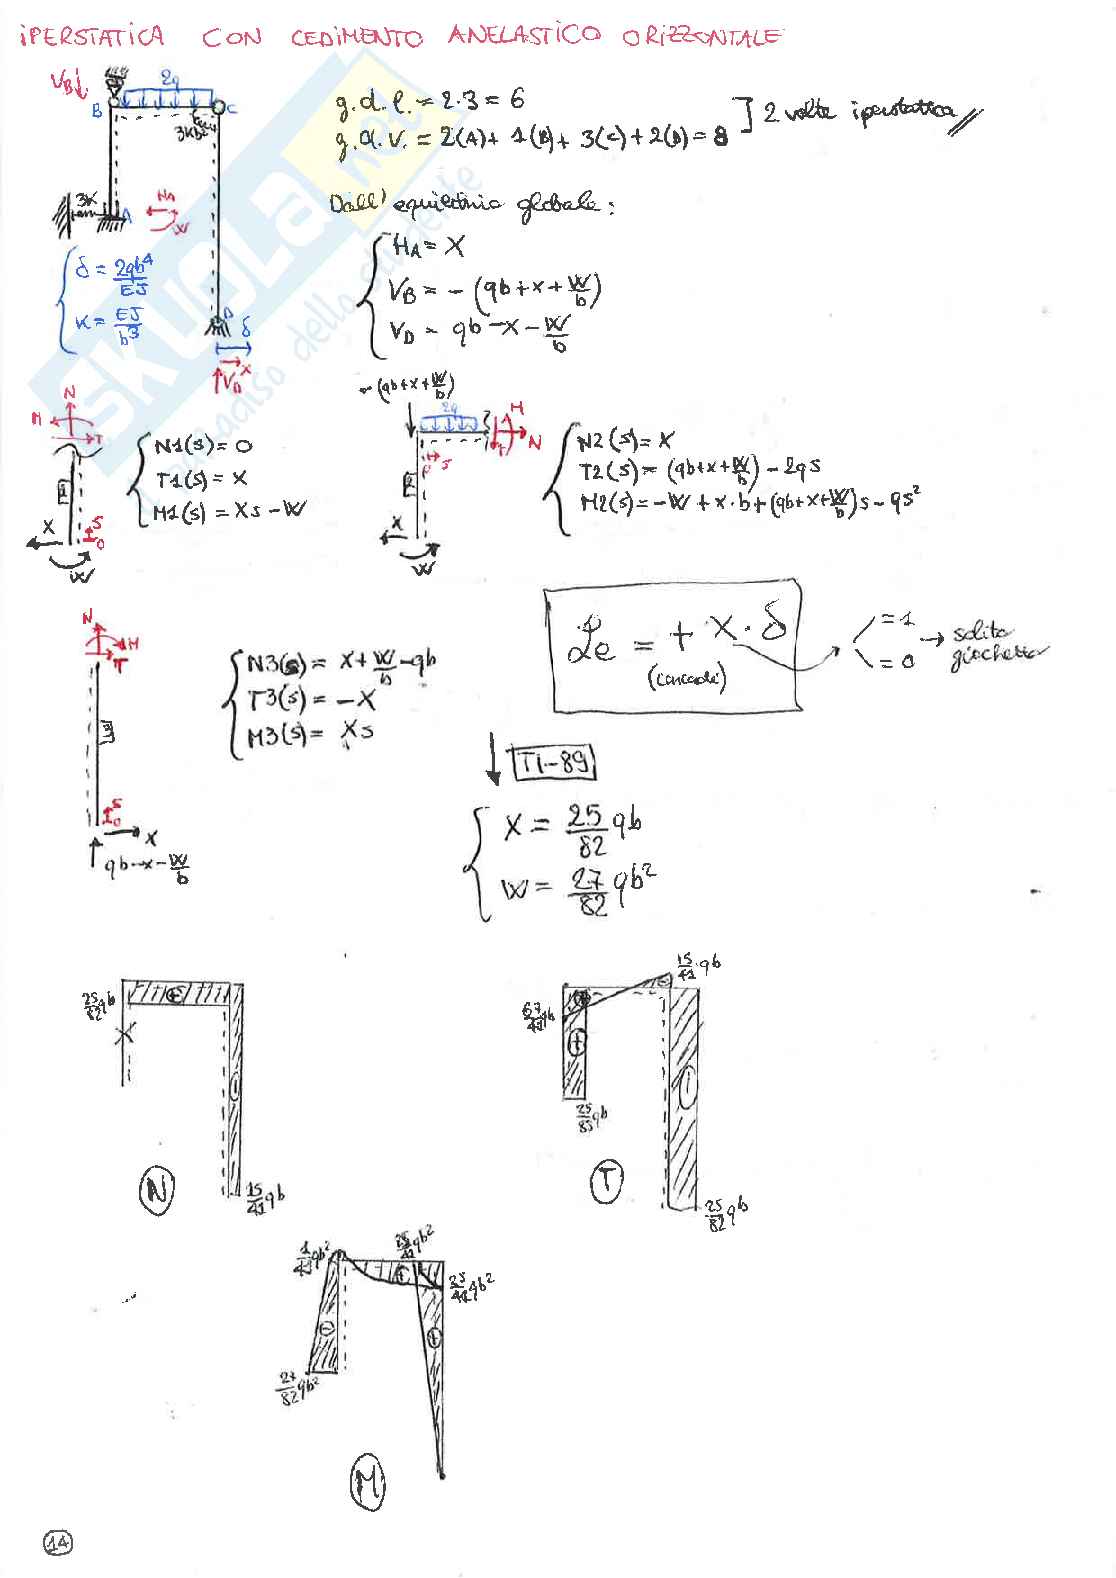 iPERSTATICA CON CEDIMENTO ANELASTICO ORIZZONTALE
V_B↓
2q
B
C
3Kb²
3K
A
H_A
W
D
δ
V_D
X
δ = 2qb⁴/EJ
K = EJ/b³
g.d.l. = 2·3 = 6
g.d.v. = 2(A) + 1(B) + 3(C) + 2(D) = 8
2 volte iperstatica
Dall' equilibrio globale:
H_A = X
V_B = -(qb + x + W/b)
V_D = qb - x - W/b
N
M
T
X
S
O
W
N1(s) = 0
T1(s) = X
M1(s) = Xs - W
-(qb + x + W/b)
2q
M
N
T
S
X
W
N2(s) = X
T2(s) = (qb + x + W/b) - 2qs
M2(s) = -W + x·b + (qb + x + W/b)s - qs²
N
M
T
S
O
X
qb - x - W/b
N3(s) = X + W/b - qb
T3(s) = -X
M3(s) = Xs
Le = + X·δ
(concorde)
= 1
= 0
→ solito giochetto
TI-89
X = 25/82 qb
W = 27/82 qb²
25/82 qb
+
-
15/41 qb
N
15/41 qb
67/41 qb
+
-
25/82 qb
25/82 qb
T
1/41 qb²
25/41 qb²
+
25/41 qb²
-
+
27/82 qb²
M
14
SKUOLA.net
paradiso dello studente